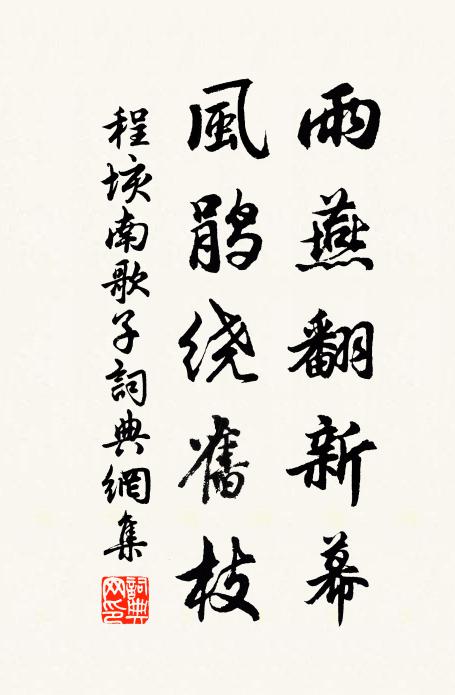 雨燕翻新幕
風鹃绕舊枝
程垓南歌子詞典網集
詞典网印